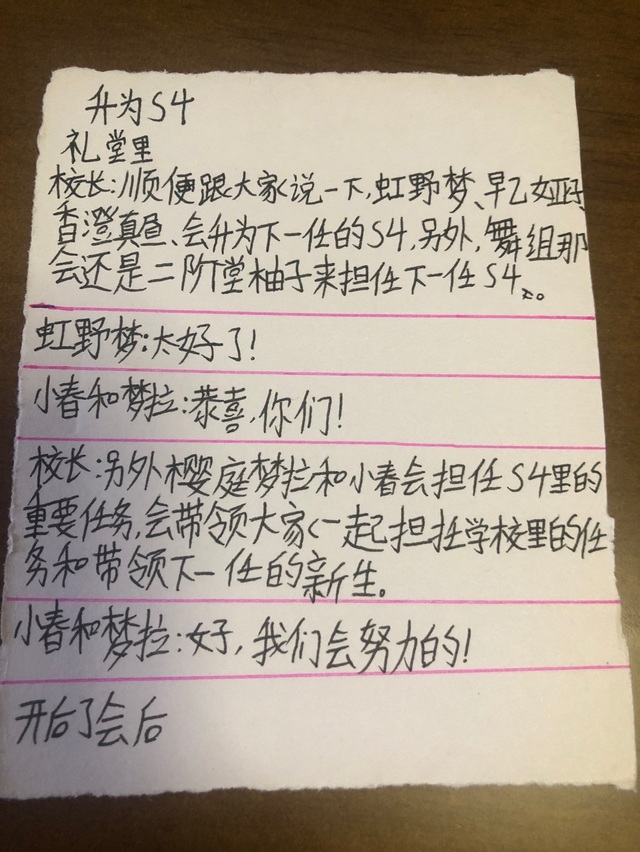 升为S4
礼堂里
校长:顺便跟大家说一下,虹野梦、早乙女亚子、
香澄真鱼、会升为下一任的S4,另外,舞组那
会还是二阶堂柚子来担任下一任S4。
虹野梦:太好了!
小春和梦拉:恭喜,你们!
校长:另外樱庭梦拉和小春会担任S4里的
重要任务,会带领大家一起担任学校里的任
务和带领下一任的新生。
小春和梦拉:好,我们会努力的!
开后了会后